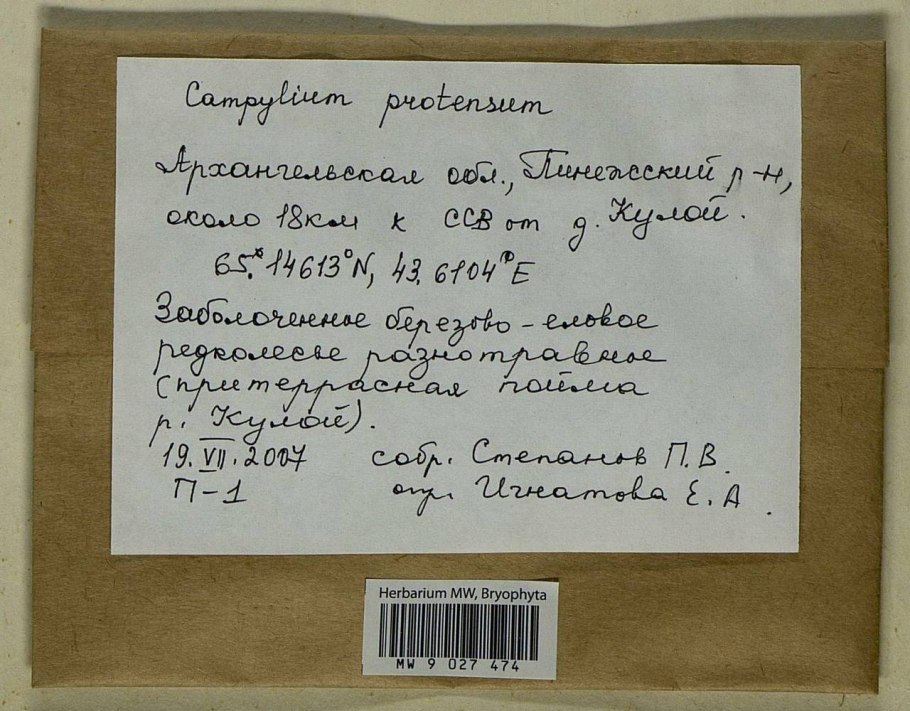 Campylium protensum
Архангельская обл., Пинежсский р-н,
около 18км к ССВ от д. Кулой.
65.14613°N, 43.6104°E
Заболоченное березово-еловое
редколесье разнотравное
(притеррасная пойма
р. Кулой).
19.VII.2007 собр. Степанов П.В.
П-1 опр. Игнатова Е.А.
Herbarium MW, Bryophyta
MW 9 027 474